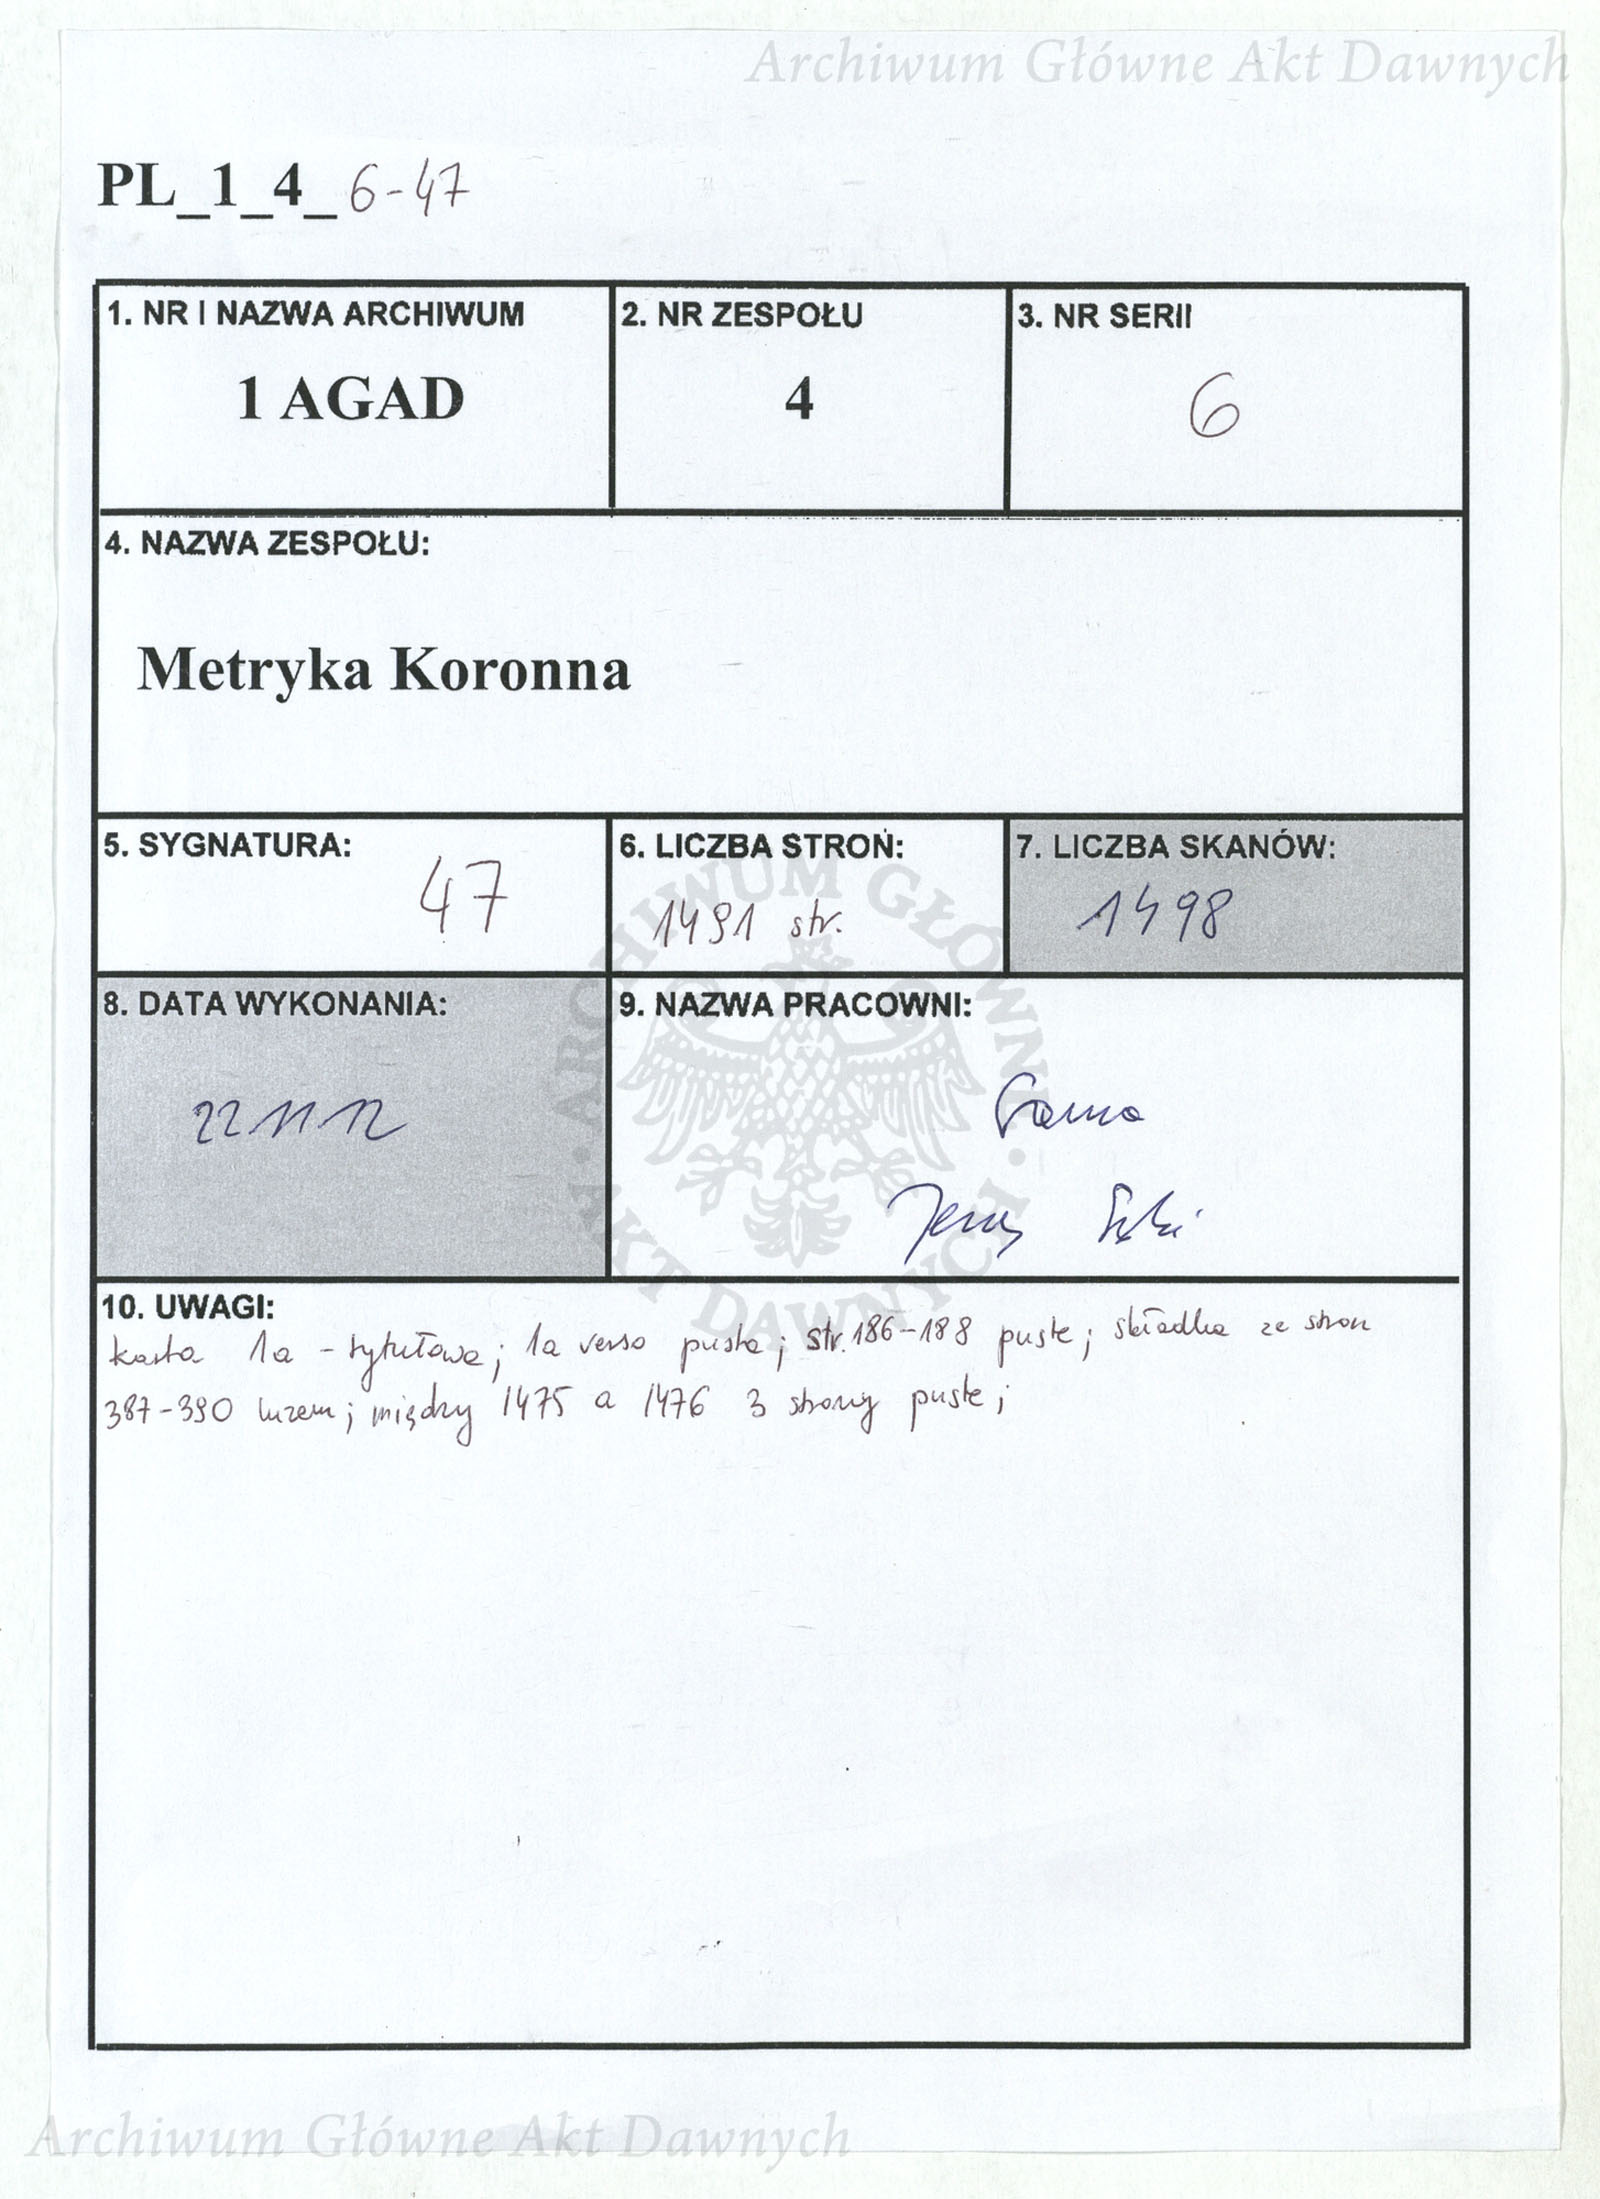 Archiwum Główne Akt Dawnych
PL_1_4_ 6-47
1. NR I NAZWA ARCHIWUM
1 AGAD
2. NR ZESPOŁU
4
3. NR SERII
6
4. NAZWA ZESPOŁU:
Metryka Koronna
5. SYGNATURA:
47
6. LICZBA STRON:
1491 str.
7. LICZBA SKANÓW:
1498
8. DATA WYKONANIA:
22 11 12
9. NAZWA PRACOWNI:
Jerzy
ARCHIWUM GŁÓWNE AKT DAWNYCH
10. UWAGI:
karta 1a - tytułowa; 1a verso pusta; str. 186-188 puste; składka ze stron
387-390 luzem; między 1475 a 1476 3 strony puste;
Archiwum Główne Akt Dawnych